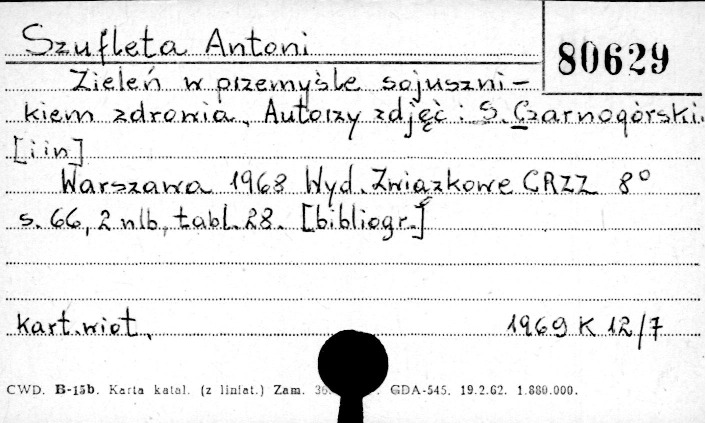 Szufleta Antoni
80629
Zieleń w przemyśle sojuszni-
kiem zdrowia. Autorzy zdjęć: S. Czarnogórski.
[i in]
Warszawa 1968 Wyd. Związkowe CRZZ 8°
s. 66, 2 nlb, tabl. 28. [bibliogr.]
kart. wiot. 1969 K 12/7
CWD. B-15b. Karta katal. (z liniat.) Zam. GDA-545. 19.2.62. 1.880.000.